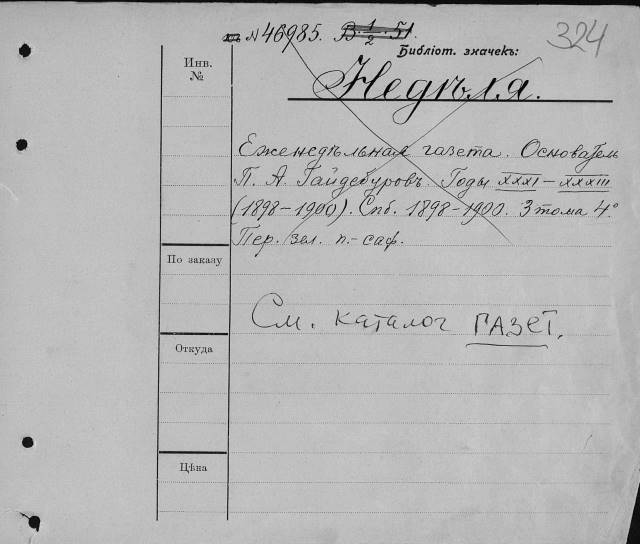 № 46985. В 1/2 51
324
Библіот. значекъ:
Инв.
№
Недѣля.
Еженедѣльная газета. Основатель
П. А. Гайдебуровъ. Годы XXXI – XXXIII
(1898–1900). Спб. 1898–1900. 3 тома 4º
Пер. зел. п.-саф.
По заказу
См. каталог ГАЗЕТ.
Откуда
Цѣна